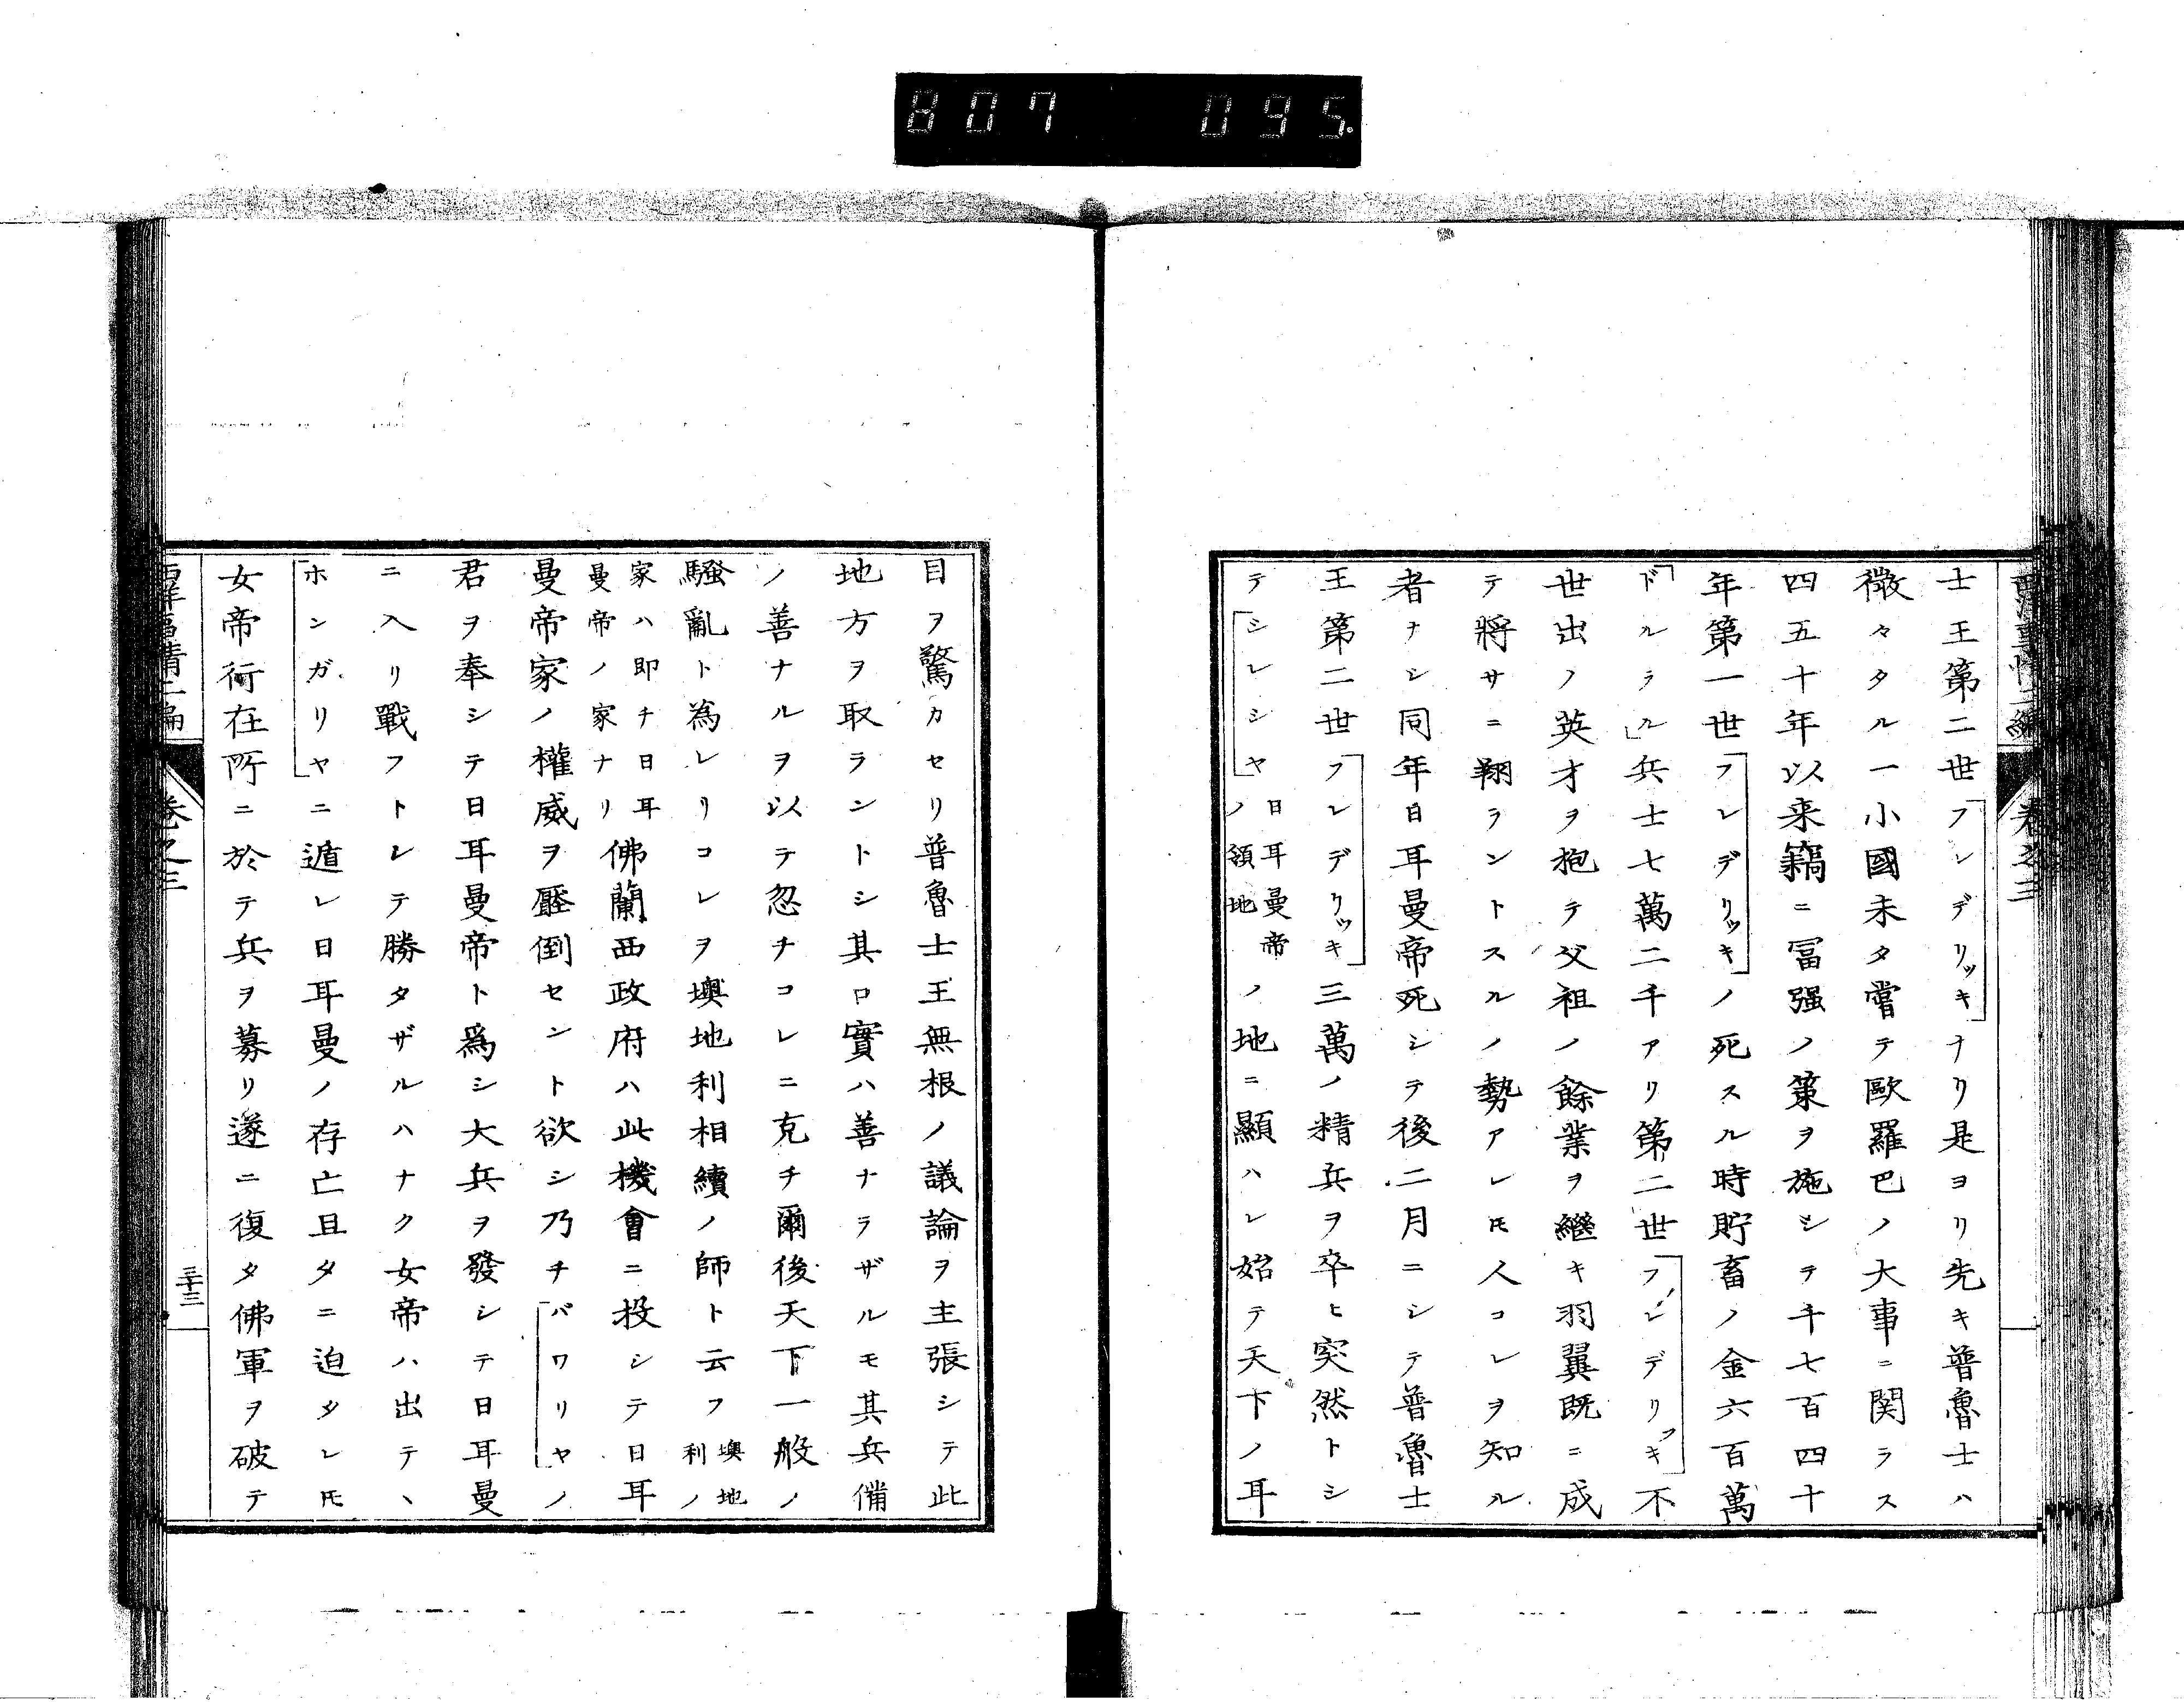 807 095.
士王第二世「フレデリッキ」ナリ是ヨリ先キ普魯士ハ
微々タル一小國未タ嘗テ歐羅巴ノ大事ニ関ラス
四五十年以来竊ニ冨强ノ策ヲ施シテ千七百四十
年第一世「フレデリッキ」ノ死スル時貯畜ノ金六百萬
「ドルラル」兵士七萬二千アリ第二世「フレデリッキ」不
世出ノ英才ヲ抱テ父祖ノ餘業ヲ繼キ羽翼既ニ成
テ將サニ翔ラントスルノ勢アレ𪜈人コレヲ知ル
者ナシ同年日耳曼帝死シテ後二月ニシテ普魯士
王第二世「フレデリッキ」三萬ノ精兵ヲ卒ヒ突然トシ
テ「シレシヤ」日耳曼帝ノ領地ノ地ニ顯ハレ始テ天下ノ耳
目ヲ驚カセリ普魯士王無根ノ議論ヲ主張シテ此
地方ヲ取ラントシ其口實ハ善ナラザルモ其兵備
ノ善ナルヲ以テ忽チコレニ克チ爾後天下一般ノ
騷亂ト為レリコレヲ墺地利相續ノ師ト云フ墺地利ノ
家ハ即チ日耳曼帝ノ家ナリ佛蘭西政府ハ此機會ニ投シテ日耳
曼帝家ノ權威ヲ壓倒セント欲シ乃チ「バワリヤ」ノ
君ヲ奉シテ日耳曼帝ト爲シ大兵ヲ發シテ日耳曼
ニ入リ戰フトレテ勝タザルハナク女帝ハ出テヽ
「ホンガリヤ」ニ遁レ日耳曼ノ存亡旦タニ迫タレ𪜈
女帝衙在所ニ於テ兵ヲ募リ遂ニ復タ佛軍ヲ破テ
西洋事情二編 卷之三
三十三